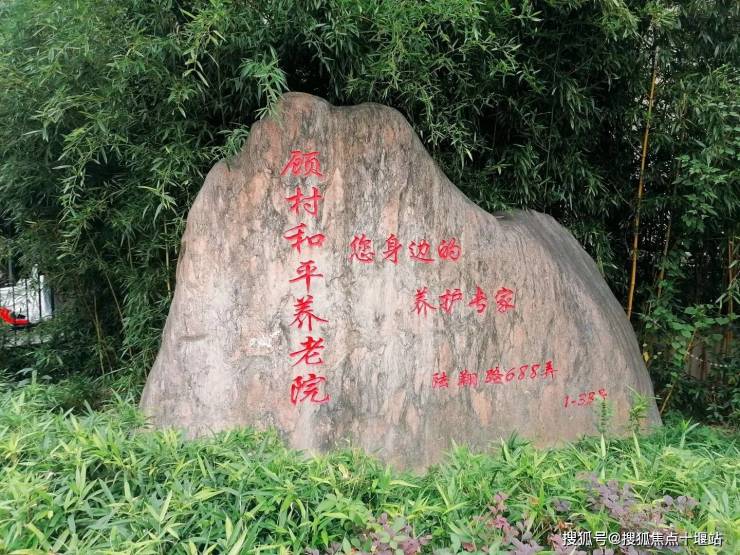 顾村和平养老院
您身边的
养护专家
陆翔路688弄
1-33号
搜狐号@搜狐焦点十堰站